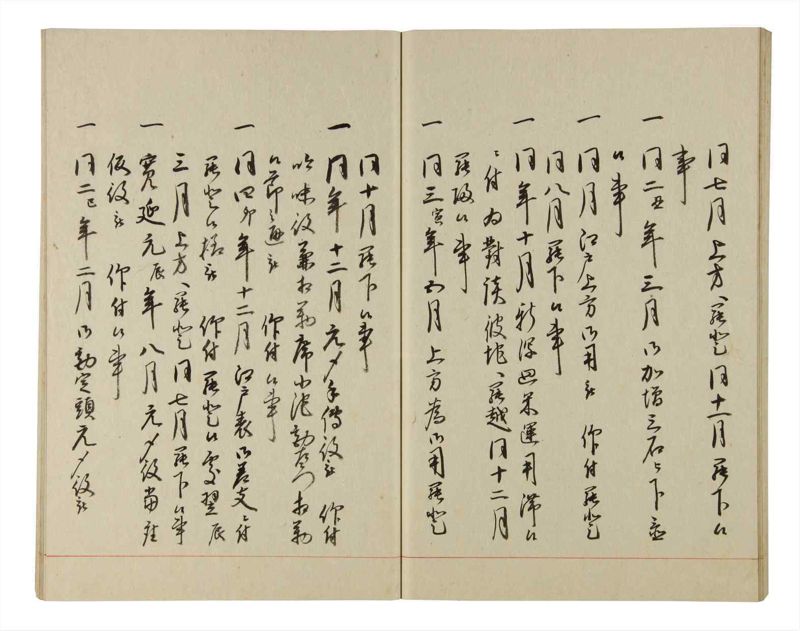 同七月上方へ罷登同十一月罷下候
事
一同二丑年三月御加増三石被下置
候事
一同月江戸上方御用被 仰付罷登
同八月罷下候事
一同年十月新深田米運用滞候
ニ付為対談彼地へ罷越同十二月
罷帰候事
一同三寅年五月上方為御用罷登
同十月罷下候事
一同年十二月元〆手伝役被 仰付
吟味役兼相勤席小池勘左衛門相勤
候節之通被 仰付候事
一同四卯年十二月江戸表御差支ニ付
罷登候様被 仰付罷登候処翌辰
三月上方へ罷登同七月罷下候事
一寛延元辰年八月元〆役当座
仮役被 仰付候事
一同二巳年二月御勘定頭元〆役被